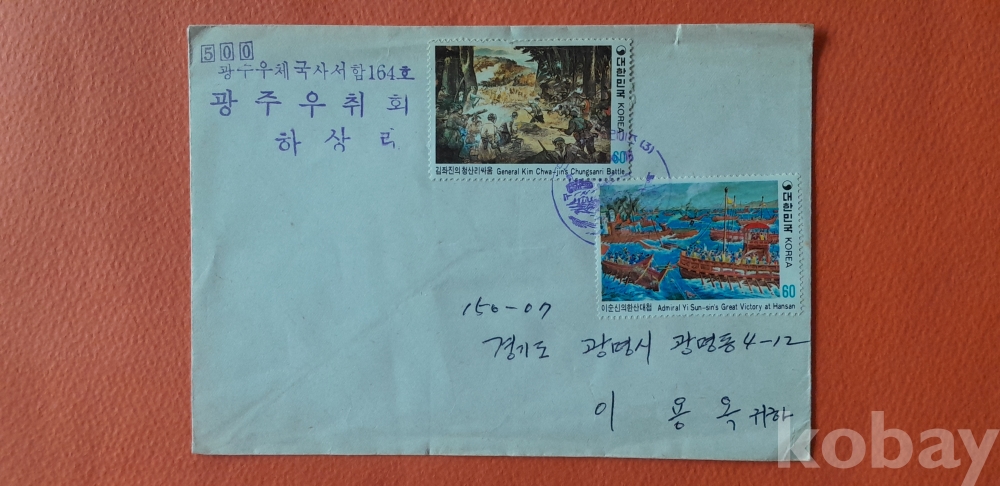 500
광주우체국사서함164호
광주우취회
하상
대한민국 KOREA
60
김좌진의청산리싸움 General Kim Chwa-jin's Chungsanri Battle
대한민국 KOREA
60
이순신의한산대첩 Admiral Yi Sun-sin's Great Victory at Hansan
150-07
경기도 광명시 광명동 4-12
이 용 옥 귀하
kobay